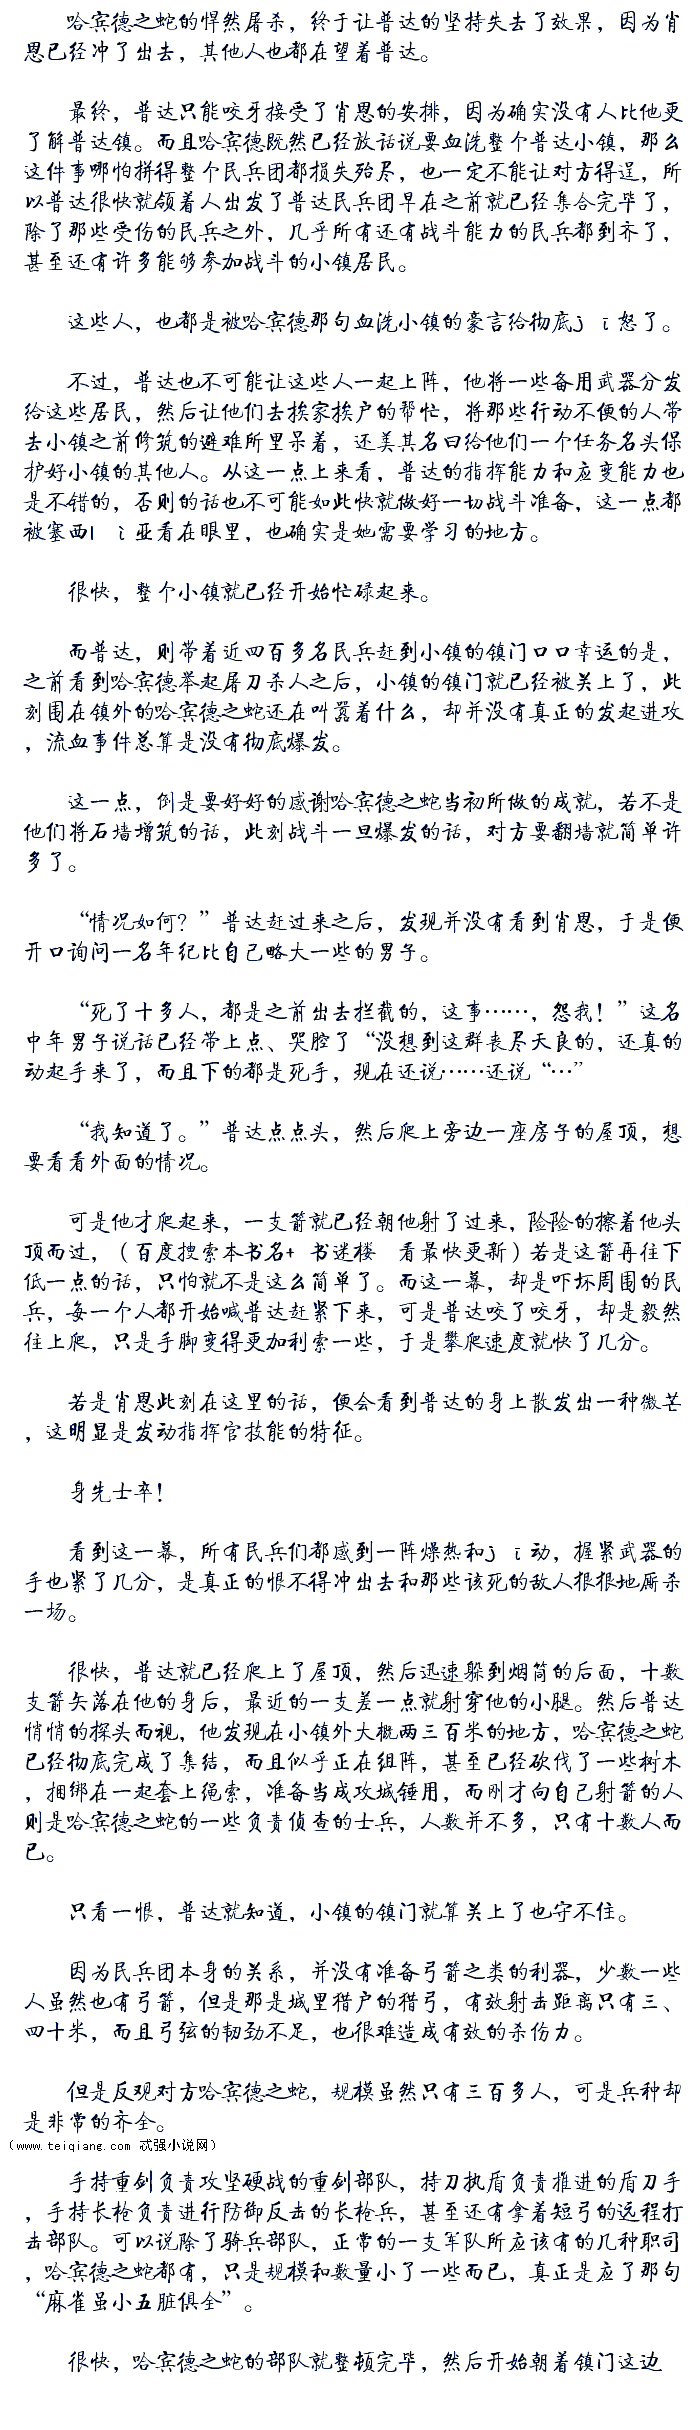 哈宾德之蛇的悍然屠杀，终于让普达的坚持失去了效果，因为肖
恩已经冲了出去，其他人也都在望着普达。
最终，普达只能咬牙接受了肖恩的安排，因为确实没有人比他更
了解普达镇。而且哈宾德既然已经放话说要血洗整个普达小镇，那么
这件事哪怕拼得整个民兵团都损失殆尽，也一定不能让对方得逞，所
以普达很快就领着人出发了普达民兵团早在之前就已经集合完毕了，
除了那些受伤的民兵之外，几乎所有还有战斗能力的民兵都到齐了，
甚至还有许多能够参加战斗的小镇居民。
这些人，也都是被哈宾德那句血洗小镇的豪言给彻底jī怒了。
不过，普达也不可能让这些人一起上阵，他将一些备用武器分发
给这些居民，然后让他们去挨家挨户的帮忙，将那些行动不便的人带
去小镇之前修筑的避难所里呆着，还美其名曰给他们一个任务名头保
护好小镇的其他人。从这一点上来看，普达的指挥能力和应变能力也
是不错的，否则的话也不可能如此快就做好一切战斗准备，这一点都
被塞西lì亚看在眼里，也确实是她需要学习的地方。
很快，整个小镇就已经开始忙碌起来。
而普达，则带着近四百多名民兵赶到小镇的镇门口口幸运的是，
之前看到哈宾德举起屠刀杀人之后，小镇的镇门就已经被关上了，此
刻围在镇外的哈宾德之蛇还在叫嚣着什么，却并没有真正的发起进攻
，流血事件总算是没有彻底爆发。
这一点，倒是要好好的感谢哈宾德之蛇当初所做的成就，若不是
他们将石墙增筑的话，此刻战斗一旦爆发的话，对方要翻墙就简单许
多了。
“情况如何？”普达赶过来之后，发现并没有看到肖恩，于是便
开口询问一名年纪比自己略大一些的男子。
“死了十多人，都是之前出去拦截的，这事……，怨我！”这名
中年男子说话已经带上点、哭腔了“没想到这群丧尽天良的，还真的
动起手来了，而且下的都是死手，现在还说……还说“…”
“我知道了。”普达点点头，然后爬上旁边一座房子的屋顶，想
要看看外面的情况。
可是他才爬起来，一支箭就已经朝他射了过来，险险的擦着他头
顶而过，（百度搜索本书名+ 书迷楼 看最快更新）若是这箭再往下
低一点的话，只怕就不是这么简单了。而这一幕，却是吓坏周围的民
兵，每一个人都开始喊普达赶紧下来，可是普达咬了咬牙，却是毅然
往上爬，只是手脚变得更加利索一些，于是攀爬速度就快了几分。
若是肖恩此刻在这里的话，便会看到普达的身上散发出一种微芒
，这明显是发动指挥官技能的特征。
身先士卒！
看到这一幕，所有民兵们都感到一阵燥热和jī动，握紧武器的
手也紧了几分，是真正的恨不得冲出去和那些该死的敌人狠狠地厮杀
一场。
很快，普达就已经爬上了屋顶，然后迅速躲到烟筒的后面，十数
支箭矢落在他的身后，最近的一支差一点就射穿他的小腿。然后普达
悄悄的探头而视，他发现在小镇外大概两三百米的地方，哈宾德之蛇
已经彻底完成了集结，而且似乎正在组阵，甚至已经砍伐了一些树木
，捆绑在一起套上绳索，准备当成攻城锤用，而刚才向自己射箭的人
则是哈宾德之蛇的一些负责侦查的士兵，人数并不多，只有十数人而
已。
只看一恨，普达就知道，小镇的镇门就算关上了也守不住。
因为民兵团本身的关系，并没有准备弓箭之类的利器，少数一些
人虽然也有弓箭，但是那是城里猎户的猎弓，有效射击距离只有三、
四十米，而且弓弦的韧劲不足，也很难造成有效的杀伤力。
但是反观对方哈宾德之蛇，规模虽然只有三百多人，可是兵种却
是非常的齐全。
（www.teiqiang.com 忒强小说网）
手持重剑负责攻坚硬战的重剑部队，持刀执盾负责推进的盾刀手
，手持长枪负责进行防御反击的长枪兵，甚至还有拿着短弓的远程打
击部队。可以说除了骑兵部队，正常的一支军队所应该有的几种职司
，哈宾德之蛇都有，只是规模和数量小了一些而已，真正是应了那句
“麻雀虽小五脏俱全”。
很快，哈宾德之蛇的部队就整顿完毕，然后开始朝着镇门这边